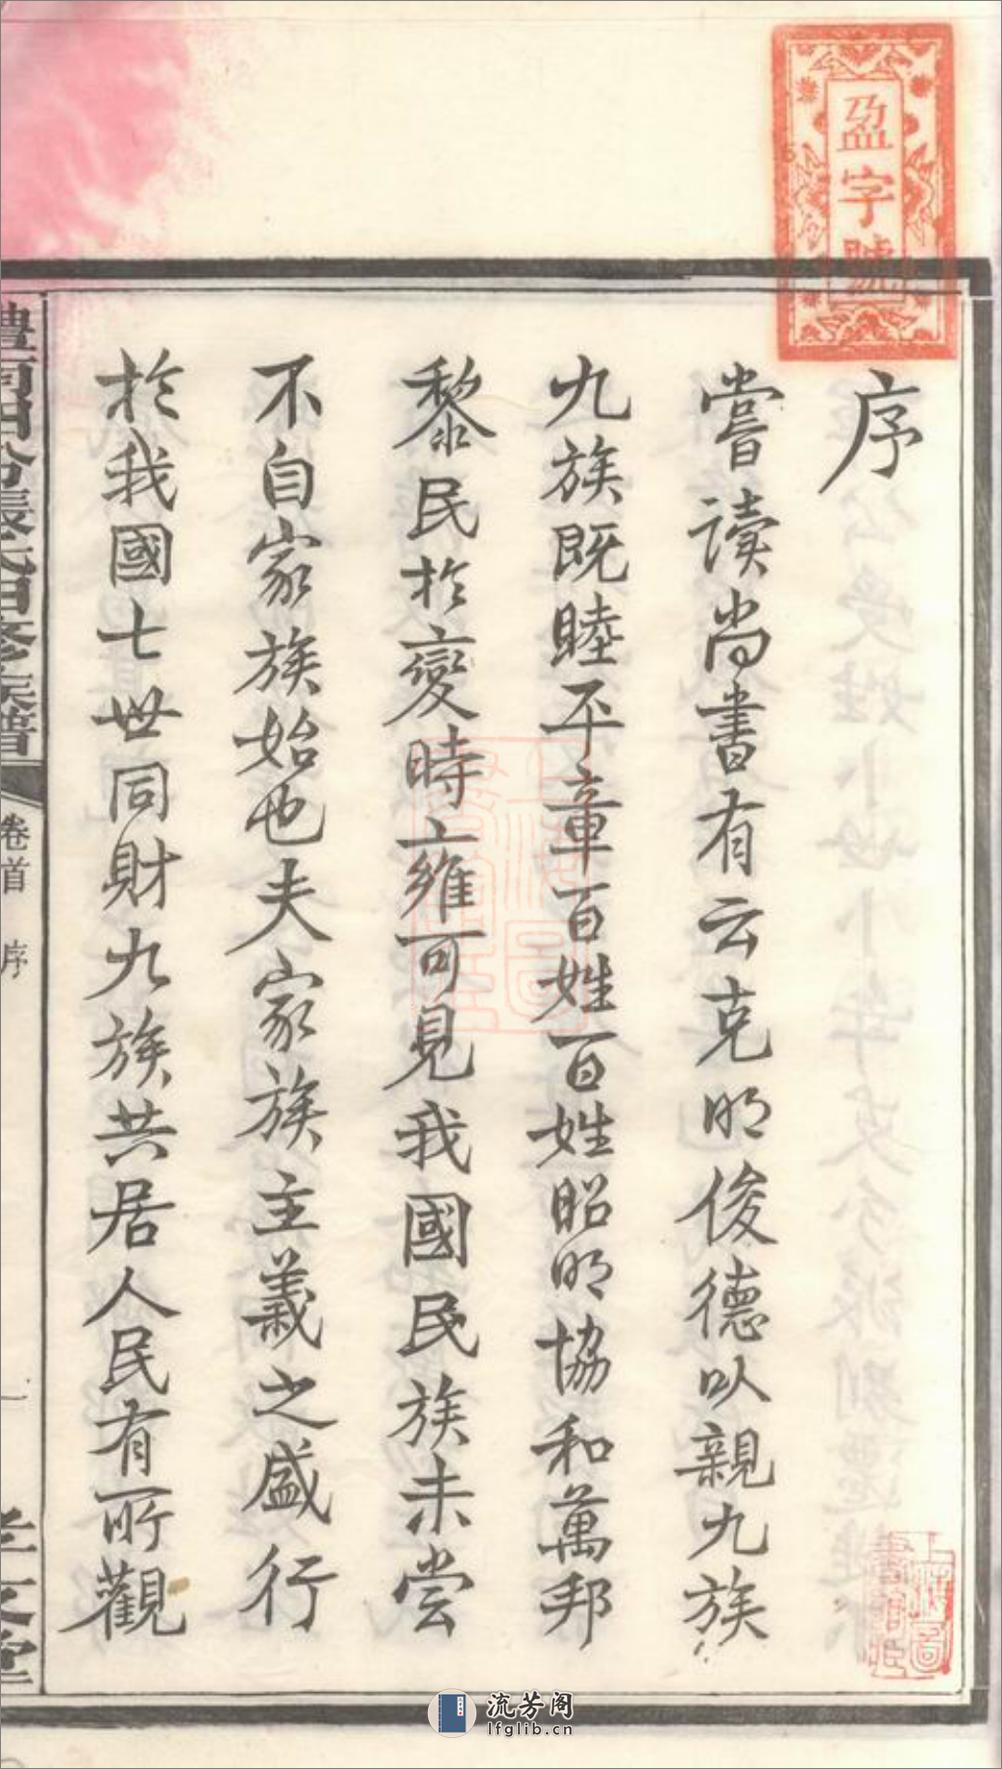 盈字號
序
嘗讀尚書有云克明俊德以親九族
九族既睦平章百姓百姓昭明協和萬邦
黎民於變時雍可見我國民族未嘗
不自家族始也夫家族主義之盛行
於我國七世同財九族共居人民有所觀
張氏四修族譜
卷首
序
一
上海圖書館藏
流芳阁
lfglib.cn